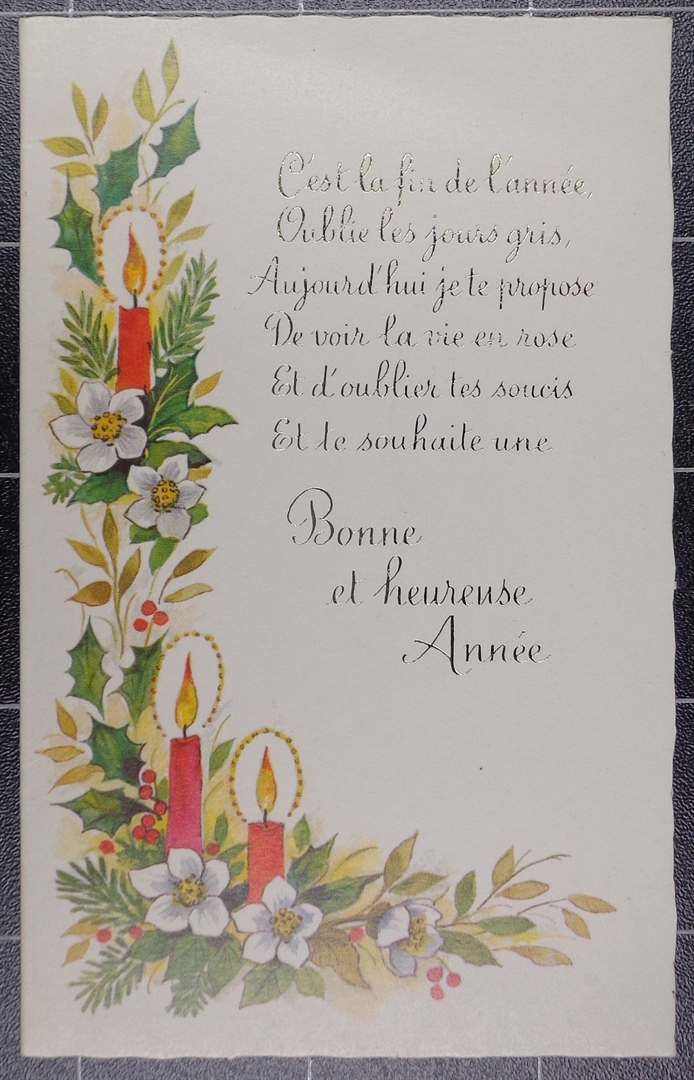 C'est la fin de l'année,
Oublie les jours gris,
Aujourd'hui je te propose
De voir la vie en rose
Et d'oublier tes soucis
Et te souhaite une
Bonne
et heureuse
Année